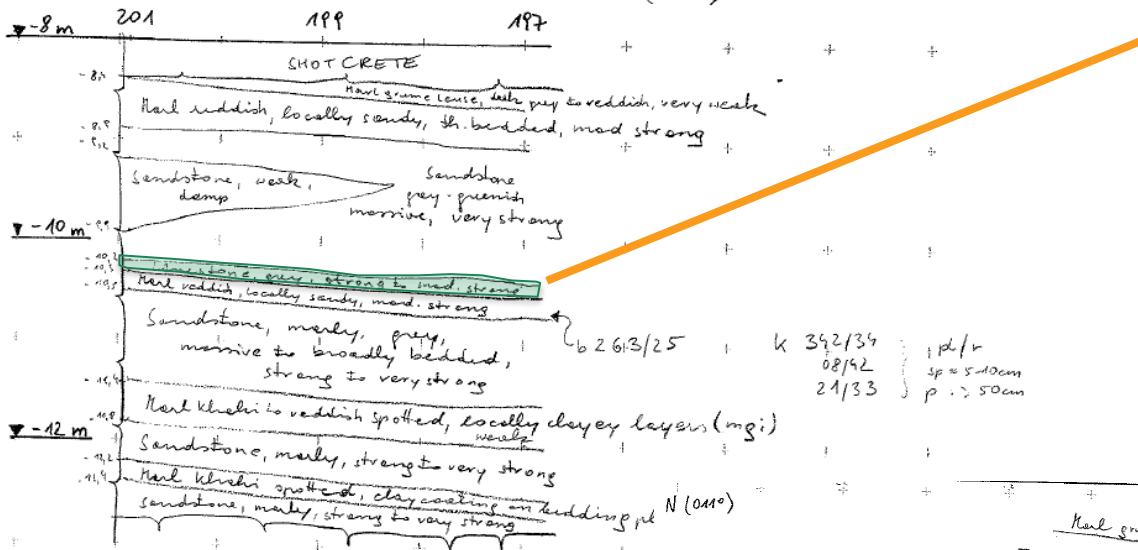 ▼ -8 m 201 199 197
SHOTCRETE
- 8,4
Marl grume leuse, dark grey to reddish, very weak
Marl reddish, locally sandy, th. bedded, mod strong
- 8,9
- 9,2
Sandstone, weak,
damp
Sandstone
grey-greenish
massive, very strong
▼ -10 m - 9,9
- 10,2
Limestone, grey, strong to mod. strong
- 10,3
Marl reddish, locally sandy, mod. strong
- 10,5
Sandstone, marly, grey,
massive to broadly bedded,
strong to very strong
b 263/25
k 342/34 , pl/r
08/42 sp ≈ 5-10cm
21/33 p 50cm
- 11,4
Marl khaki to reddish spotted, locally clayey layers (mgi)
weak
- 11,8
▼ -12 m
Sandstone, marly, strong to very strong
- 12,2
Marl khaki spotted, claycoating on bedding pl
- 12,4
N (011°)
sandstone, marly, strong to very strong
Marl